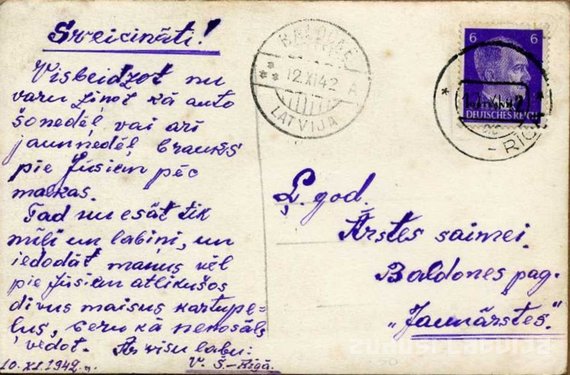 Sveicināti!
Visbeidzot nu
varu ziņot kā auto
šonedēļ vai arī
jaunnedēļ brauks
pie Jūsien pēc
malkas.
Tad nu esāt tik
mīļi un labiņi, un
iedodāt maņus vēl
pie Jūsien atlikušos
divus maisus kartupe-
ļus, ceru kā nenosāls
vedot. Ar visu labu:
V. Š-Rīgā.
10.XI.1942.
BALDONE
12.XI.42 A
LATVIJA
6 6
OSTLAND
DEUTSCHES REICH
XI.42
- RIGA
Ļ. god.
Ārstes saimei.
Baldones pag.
„Jaunārstes."